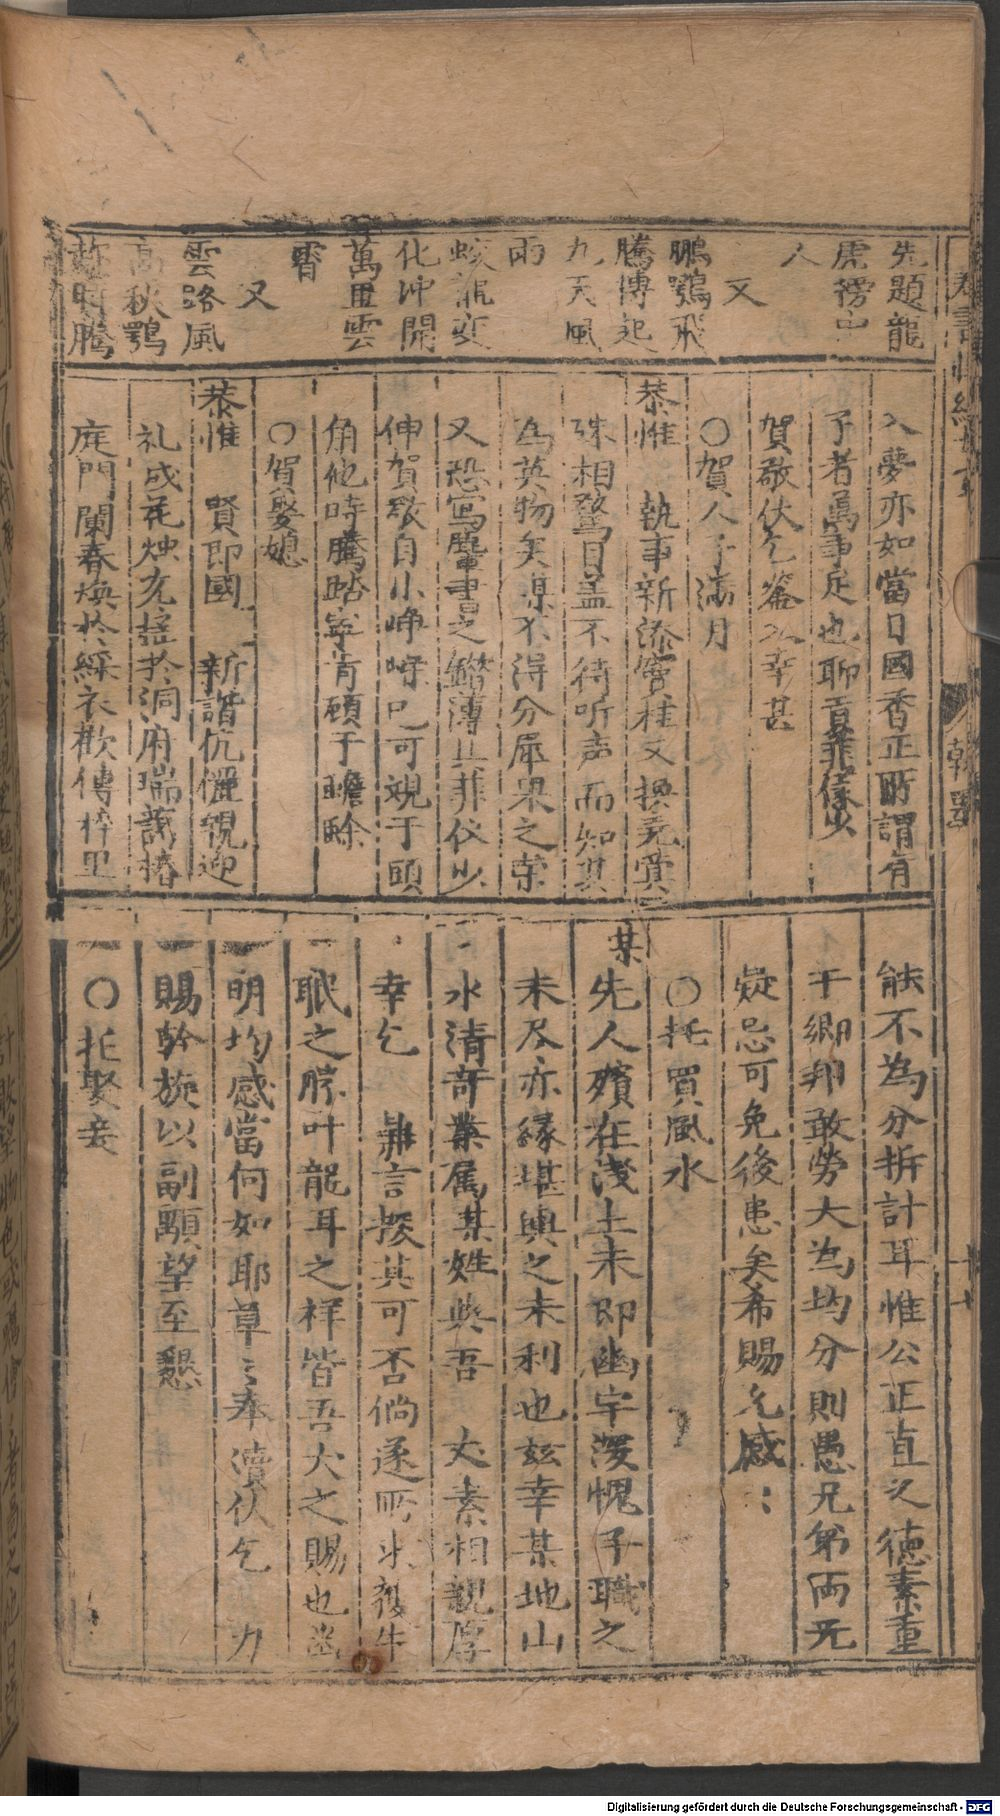 先題龍
虎榜中
人
又
鵬鶚飛
騰博起
九天風
雨
蛟龍变
化冲開
萬里雲
霄
又
雲路風
高秋鶚
趂時騰
入夢亦如當日國香正所謂有
子者萬事足也聊貢菲儀少
賀敬伏乞鑒入幸甚
○賀人子滿月
恭惟 執事新添竇桂又換堯蓂
殊相驚目盖不待听声而知其
為英物矣恨不得分犀果之荣
又恐写麞書之鐟薄具菲仪少
伸賀襚自小崢嶸已可覘于頭
角他時騰踏寧肯碩于瞻睮
○賀娶媳
恭惟 賢郎國 新諧伉儷親迎
礼成花烛充搖於洞房瑞藹椿
庭門闌春煥於綵衣歡傳梓里
能不為分拆計耳惟公正直之德素重
于鄉邦敢勞大為均分則愚兄弟両无
疑忌可免後患矣希賜允感：
○托買風水
某先人殯在浅土未即幽宅深愧子職之
未尽亦緣堪輿之未利也玆幸某地山
水清奇業属某姓與吾 丈素相親厚
幸乞 鼎言探其可否倘遂所求獲牛
眠之勝叶龍耳之祥皆吾丈之賜也幽
明均感當何如耶草々奉瀆伏乞 力
賜幹旋以副顒望至懇
○托娶妾
Digitalisierung gefördert durch die Deutsche Forschungsgemeinschaft - DFG